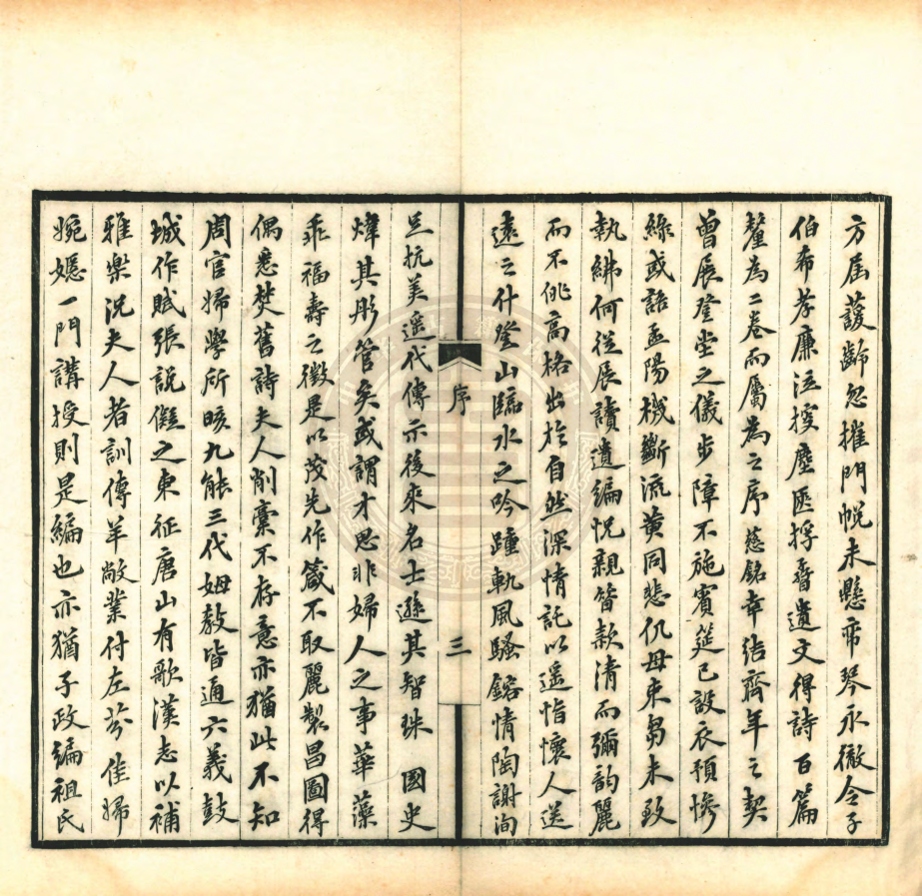 方屆護齡忽摧門帨未懸帝琴永徹令子
伯希孝廉泣搜塵匧捊胥遺文得詩百篇
釐為二卷而屬為之序慈銘幸結齊年之契
曾展登堂之儀步障不施賓筵已設衣預慘
綠或語孟陽機斷流黃同悲仉母束芻未致
執紼何從展讀遺編怳親笤款清而彌韵麗
而不佻高格出於自然深情託以遥恉懷人送
遠之什登山臨水之吟踵軌風騷鎔情陶謝洵
序
三
足抗美遥代傳示後來名士遜其智珠 國史
煒其彤管矣或謂才思非婦人之事華藻
乖福壽之徵是以茂先作箴不取麗製昌圖得
偶悉焚舊詩夫人削稾不存意亦猶此不知
周官婦學所晐九能三代姆教皆通六義鼓
城作賦張說儗之東征唐山有歌漢志以補
雅樂況夫人者訓傳羊敞業付左芬佳婦
婉嫕一門講授則是編也亦猶子政編祖氏